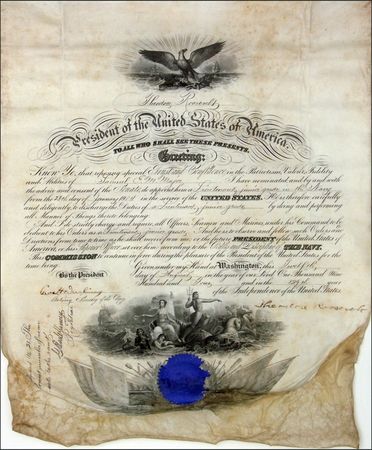 Theodore Roosevelt
President of the United States of America.
TO ALL WHO SHALL SEE THESE PRESENTS,
Greeting:
Know Ye, that reposing special Trust and Confidence in the Patriotism, Valor, Fidelity
and Abilities of I have nominated, and by and with
the advice and consent of the Senate, do appoint a Lieutenant, junior grade in the Navy
from the day of 1904 in the service of the UNITED STATES. He is therefore carefully
and diligently to discharge the Duties of Lieutenant, junior grade by doing and performing
all Manner of Things thereto belonging.
And I do strictly charge and require all Officers, Seamen and Marines, under his Command to be
obedient to his Orders as a Lieutenant, junior grade. And he is to observe and follow such Orders and
Directions from time to time as he shall receive from me, or the future PRESIDENT of the United States of
America, or his Superior Officer set over him, according to the Rules and Discipline of THE NAVY.
This COMMISSION to continue in force during the pleasure of the President of the United States for the
time being.
Given under my Hand at Washington, this
By the President day of in the year of our Lord One Thousand Nine
Hundred and Four and in the year
of the Independence of the United States.
Theodore Roosevelt
Secretary of the Navy